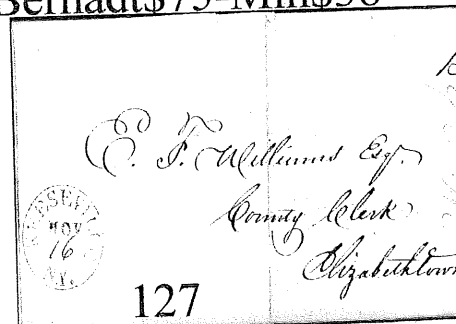 Bernadt$75-Min$50
E. F. Williams Esqr.
County Clerk
Elizabethtown
KEESEVILLE
NOV
16
N.Y.
127